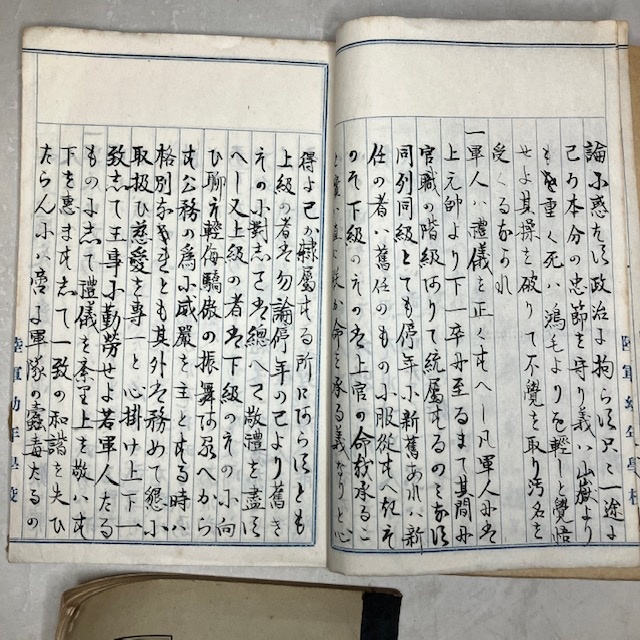 論に惑はす政治に拘らす只々一途に
己か本分の忠節を守り義ハ山嶽より
も重く死ハ鴻毛よりも輕しと覺悟
せよ其操を破りて不覺を取り汚名を
受くるなかれ
一軍人ハ禮儀を正くすへし凡軍人には
上元帥より下一卒に至るまて其間に
官職の階級ありて統屬するのみならす
同列同級とても停年に新舊あれハ新
任の者ハ舊任のものに服從すへきも
のそ下級のものは上官の命を承るこ
と實は直に朕か命を承る義なりと心
陸軍幼年學校
得よ己か隷屬する所にあらすとも
上級の者は勿論停年の己より舊き
ものに對しては總へて敬禮を盡す
へし又上級の者は下級のものに向
ひ聊も輕侮驕傲の振舞あるへから
す公務の爲に威嚴を主とする時ハ
格別なれとも其外は務めて懇に
取扱ひ慈愛を專一と心掛け上下一
致して王事に勤勞せよ若軍人たる
ものにして禮儀を紊り上を敬ハす
下を惠ますして一致の和諧を失ひ
たらんにハ啻に軍隊の蠹毒たるの
陸軍幼年學校